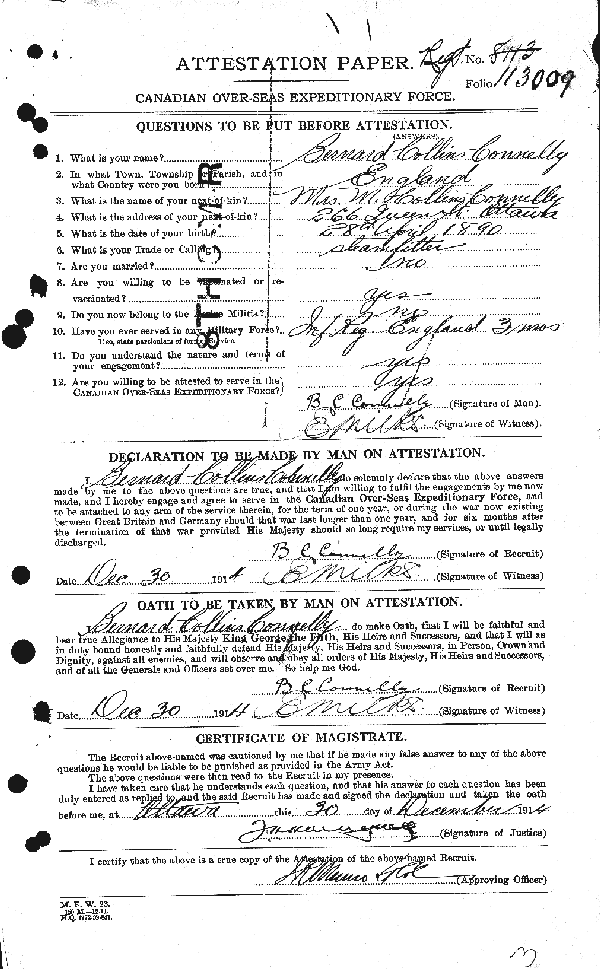 ATTESTATION PAPER. Regt. No. 8113
Folio. 113009
CANADIAN OVER-SEAS EXPEDITIONARY FORCE.
QUESTIONS TO BE PUT BEFORE ATTESTATION.
(ANSWERS)
1. What is your name? Bernard Collins Connelly
2. In what Town, Township or Parish, and in
what Country were you born? England
3. What is the name of your next-of-kin? Mrs. M. Collins Connelly
4. What is the address of your next-of-kin? 266 Queen St. Ottawa
5. What is the date of your birth? 28 April 1890
6. What is your Trade or Calling? steamfitter
7. Are you married? no
8. Are you willing to be vaccinated or re-
vaccinated? yes
9. Do you now belong to the Active Militia? no
10. Have you ever served in any Military Force? Inf Reg England 3 mos
If so, state particulars of former Service
11. Do you understand the nature and terms of
your engagement? yes
12. Are you willing to be attested to serve in the
CANADIAN OVER-SEAS EXPEDITIONARY FORCE? yes
B C Connelly (Signature of Man).
E Milks (Signature of Witness).
DECLARATION TO BE MADE BY MAN ON ATTESTATION.
I, Bernard Collins Connelly do solemnly declare that the above answers
made by me to the above questions are true, and that I am willing to fulfil the engagements by me now
made, and I hereby engage and agree to serve in the Canadian Over-Seas Expeditionary Force, and
to be attached to any arm of the service therein, for the term of one year, or during the war now existing
between Great Britain and Germany should that war last longer than one year, and for six months after
the termination of that war provided His Majesty should so long require my services, or until legally
discharged.
B C Connelly (Signature of Recruit)
Date Dec 30 1914 E Milks (Signature of Witness)
OATH TO BE TAKEN BY MAN ON ATTESTATION.
I, Bernard Collins Connelly do make Oath, that I will be faithful and
bear true Allegiance to His Majesty King George the Fifth, His Heirs and Successors, and that I will as
in duty bound honestly and faithfully defend His Majesty, His Heirs and Successors, in Person, Crown and
Dignity, against all enemies, and will observe and obey all orders of His Majesty, His Heirs and Successors,
and of all the Generals and Officers set over me. So help me God.
B C Connelly (Signature of Recruit)
Date Dec 30 1914 E Milks (Signature of Witness)
CERTIFICATE OF MAGISTRATE.
The Recruit above-named was cautioned by me that if he made any false answer to any of the above
questions he would be liable to be punished as provided in the Army Act.
The above questions were then read to the Recruit in my presence.
I have taken care that he understands each question, and that his answer to each question has been
duly entered as replied to, and the said Recruit has made and signed the declaration and taken the oath
before me, at Ottawa this 30 day of December 1914
(Signature of Justice)
I certify that the above is a true copy of the Attestation of the above-named Recruit.
(Approving Officer)
M. F. W. 23.